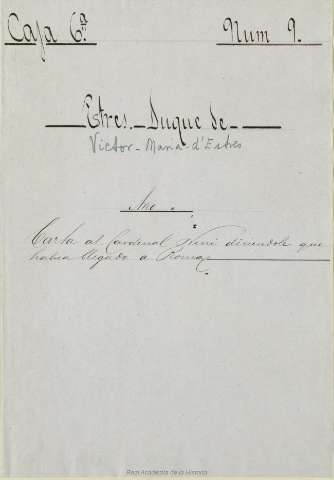 Caja 6ª Num 9.
Estres. Duque de
Victor-Maria-d'Estres
Carta al Cardenal diciendole que
habia llegado a Roma
Real Academia de la Historia